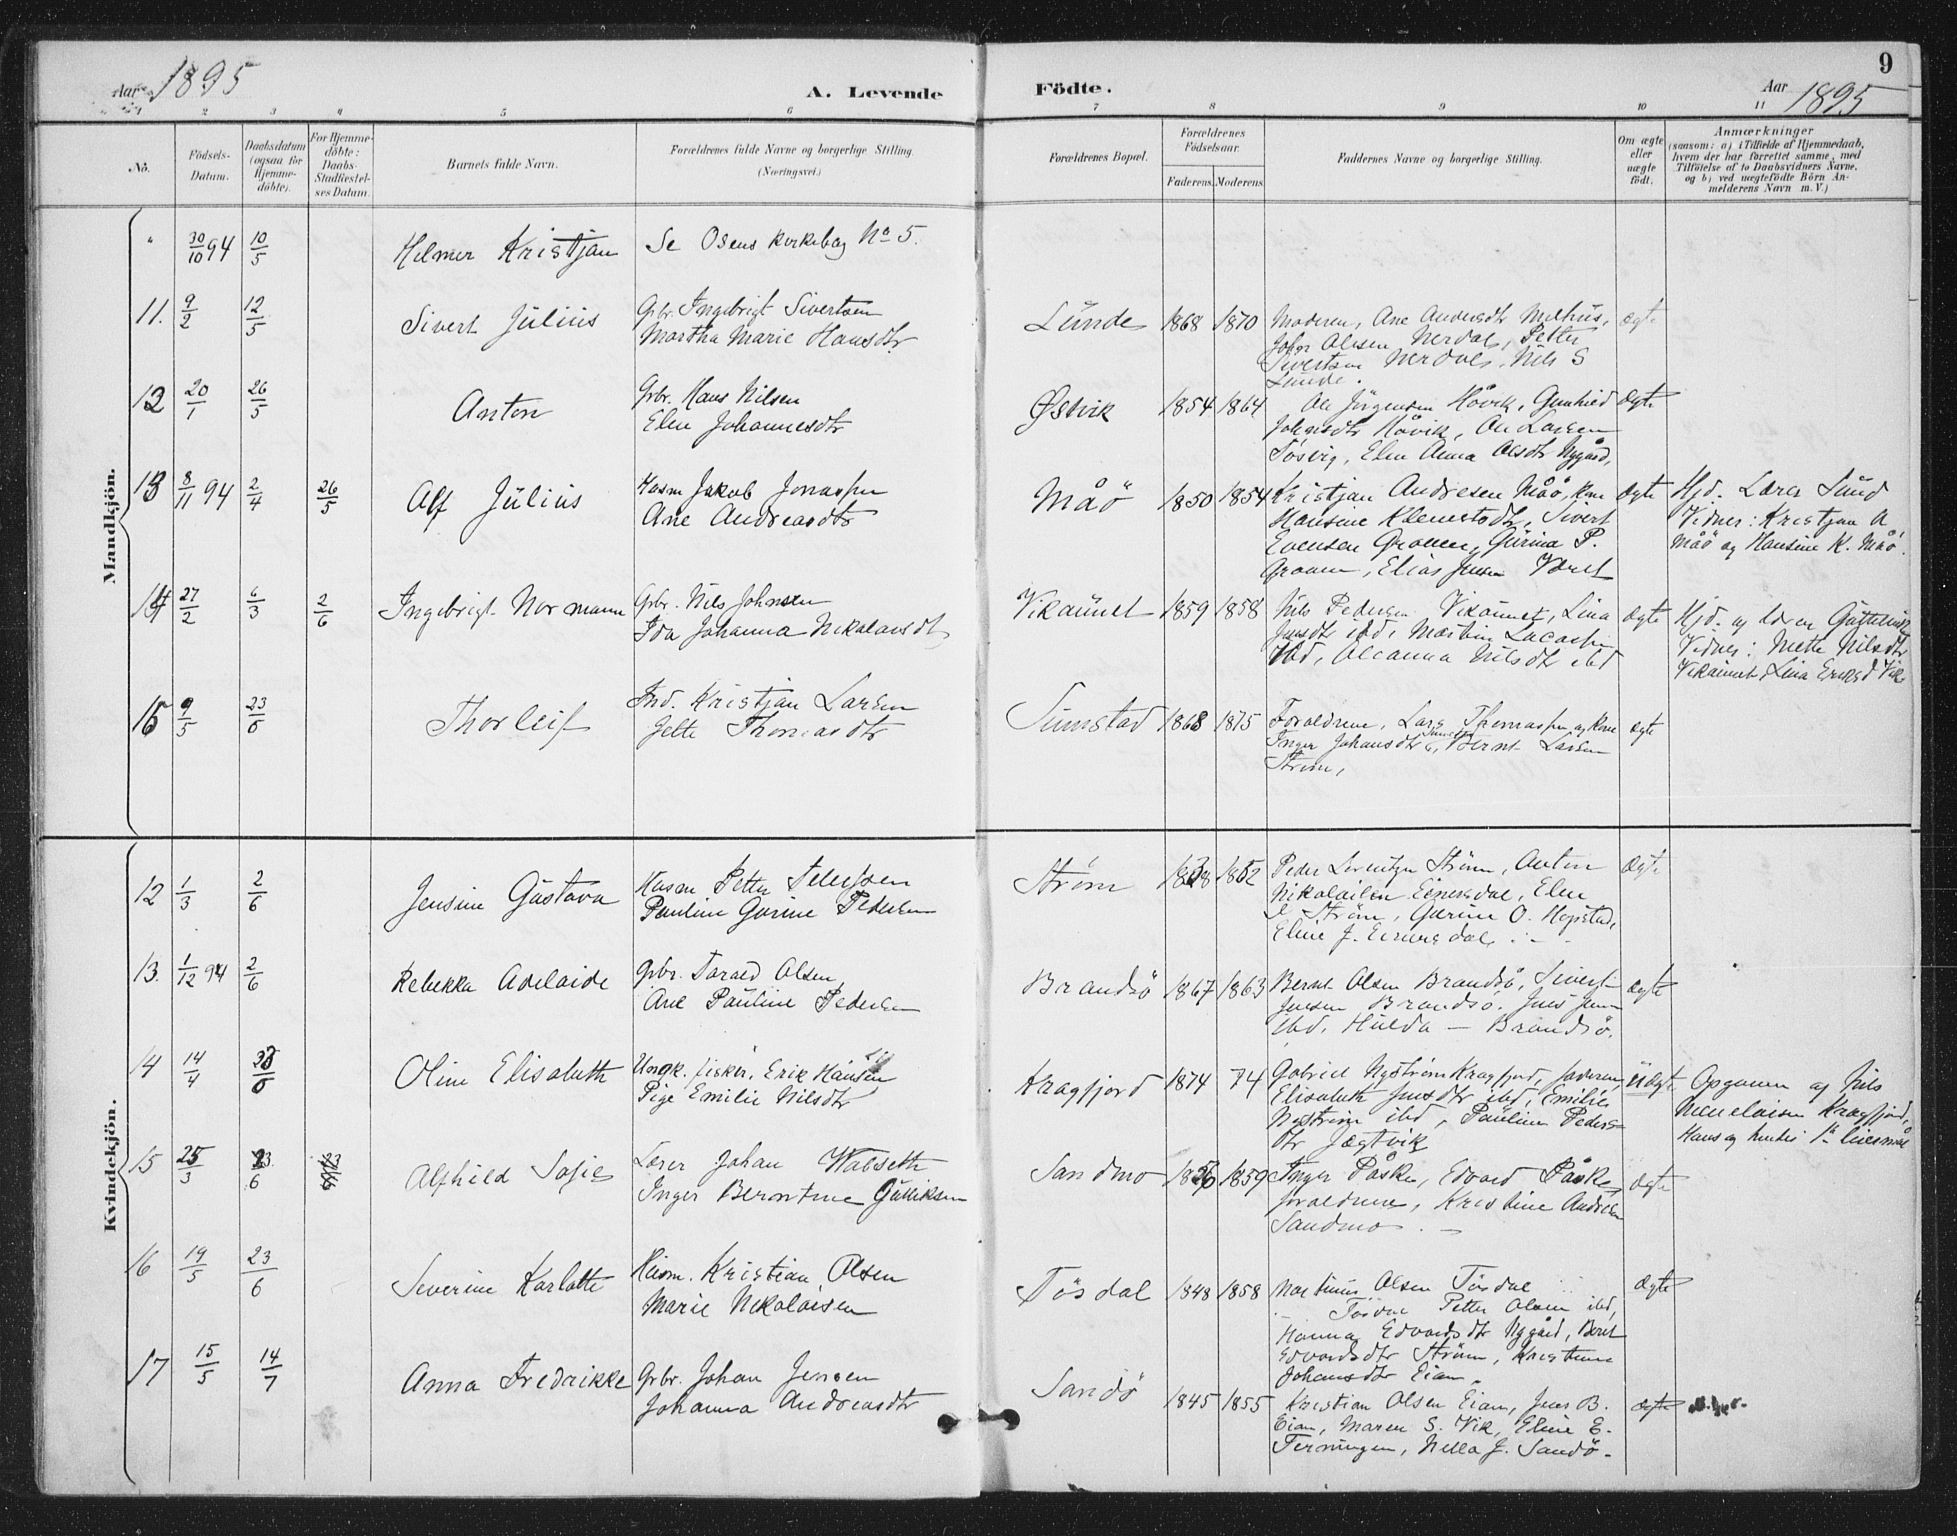 Aar 1895
A. Levende
Födte.
Aar 1895
9
1 2 3 4 5 6 7 8 9 10 11
No.
Födsels-Datum.
Daabsdatum (ogsaa for Hjemme-döbte).
For Hjemme-döbte: Daabs-Stadfæstel-ses Datum.
Barnets fulde Navn.
Forældrenes fulde Navne og borgerlige Stilling. (Næringsvei.)
Forældrenes Bopæl.
Forældrenes Födselsaar.
Faderens. Moderens.
Faddernes Navne og borgerlige Stilling.
Om ægte eller uægte födt.
Anmærkninger
(saasom: a) i Tilfælde af Hjemmedaab, hvem der har forrettet samme, med Tilföielse af to Daabsvidners Navne, og b) ved uægtefödte Börn An-melderens Navn m. V.)
Mandkjön.
" 30/10 94 10/5 Helmer Kristjan Se Osens kirkebog No 5.
11. 9/2 12/5 Sivert Julius Gbr. Ingebrigt Sivertsen
Martha Marie Hansdtr.
Lunde 1868 1870 Moderen, Ane Andersdtr Melhus,
Johan Olssen Nerdal, Petter
Sivertsen Nerdal, Nils S
Lunde.
ægte
12 20/1 26/5 Anton Gbr. Hans Nilsen
Elen Johannesdtr
Østvik 1854 1864 Ole Jörgensen Hövik, Gunhild
Johnsdtr Hövik, Ole Larsen
Tösvig, Elen Anna Olsdtr Nygård,
ægte
13 8/11 94 2/4 26/5 Alf Julius Husm Jakob Jonassen
Ane Andreasdtr
Måö 1850 1854 Kristjan Andresen Måö, kone
Hansine Klemetsdtr, Sivert
Evensen Groven, Gurina P.
Groven, Elias Jensen Voret
ægte Hjd. Lærer Sund
Vidner: Kristjan A
Måö og Hansine K. Måö.
14 27/2 6/3 2/6 Ingebrigt Normann Gbr. Nils Johnsen
Ida Johanna Nikolaisdtr
Vikaunet 1859 1858 Nils Pedersen Vikaunet, Lina
Jensdtr ibd,
ibd, Oleanna Nilsdtr ibd
ægte Hjd. af læren
Vidner: Mette Nilsdtr
Vikaunet, Lina Vik
15 9/5 23/6 Thorleif Ind. Kristjan Larsen
Jette Thomasdtr
Sumstad 1868 1875 Forældrene, Lars Thomassen og kone
Inger Johansdtr Sumstad, Bernt Larsen
Ström,
ægte
Kvindekjön.
12 1/3 2/6 Jensine Gustava Husm Petter
Pauline Gurine Pedersen
Ström Peder Lorentzen Ström, Anton
Nikolaisen Einersdal, Elen
Ström, Gurine O. Hepstad,
Eline J. Einersdal
ægte
13. 1/12 94 2/6 Rebekka Adelaide Gbr. Olsen
Ane Pauline Pedersen
Brandsö 1867 1863 Bernt Olsen Brandsö, Sivert
Jensen Brandsö, Jens
ibd, Hulda — Brandsö.
ægte
14 14/4 Oline Elisabeth Ungk. fisker. Erik Hansen
Pige Emilie Nilsdtr
Kragfjord 1874 74 Gabriel Nyström Kragfjord, faderen,
Elisabeth Jensdtr ibd, Emilie
Nyström ibd, Pauline Peders-
dtr Jægtvik
uægte Opgaven af Nils
Kragfjord,
15 25/3 23/6 Alfhild Sofie Lærer Johan Walseth
Inger Berntine Gulliksen
Sandmo 1859 Inger Påske, Edvard Påske,
forældrene, Kristine Andresen
Sandmo
ægte
16 19/5 23/6 Severine Karlotte Husm. Kristian Olsen
Marie Nikolaisen
Tösdal 1848 1858 Martinus Olsen Tösdal
Tösdal Petter Olsen ibd,
Hanna Edvardsdtr Nygård, Beret
Edvardsdtr Ström, Kristine
Johansdtr Eian.
ægte
17 15/5 14/7 Anna Fredrikke Gbr. Johan Jensen
Johanna Andreasdtr
Sandö 1845 1855 Kristian Olsen Eian, Jens B.
Eian, Maren S. Vik, Eline E.
Terningen, Nella J. Sandö.
ægte